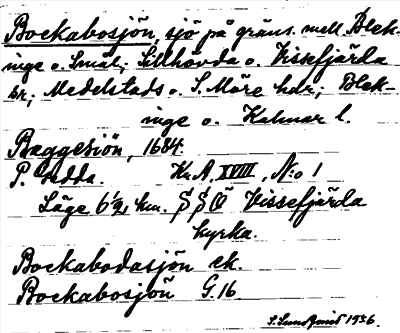 Bockabosjön, sjö på gräns. mell. Blek-
inge o. Smål.; Sillhövda o. Vissefjärda
sr; Medelstads o. S. Möre hdr; Blek-
inge o. Kalmar l.
Baggesiön, 1684.
P. Gedda. Kr.A. XVIII, N:o 1
Läge 6½ km. SSV Vissefjärda
kyrka.
Bockabodasjön ek.
Bockabosjön G.16
S. Sundquist 1936.